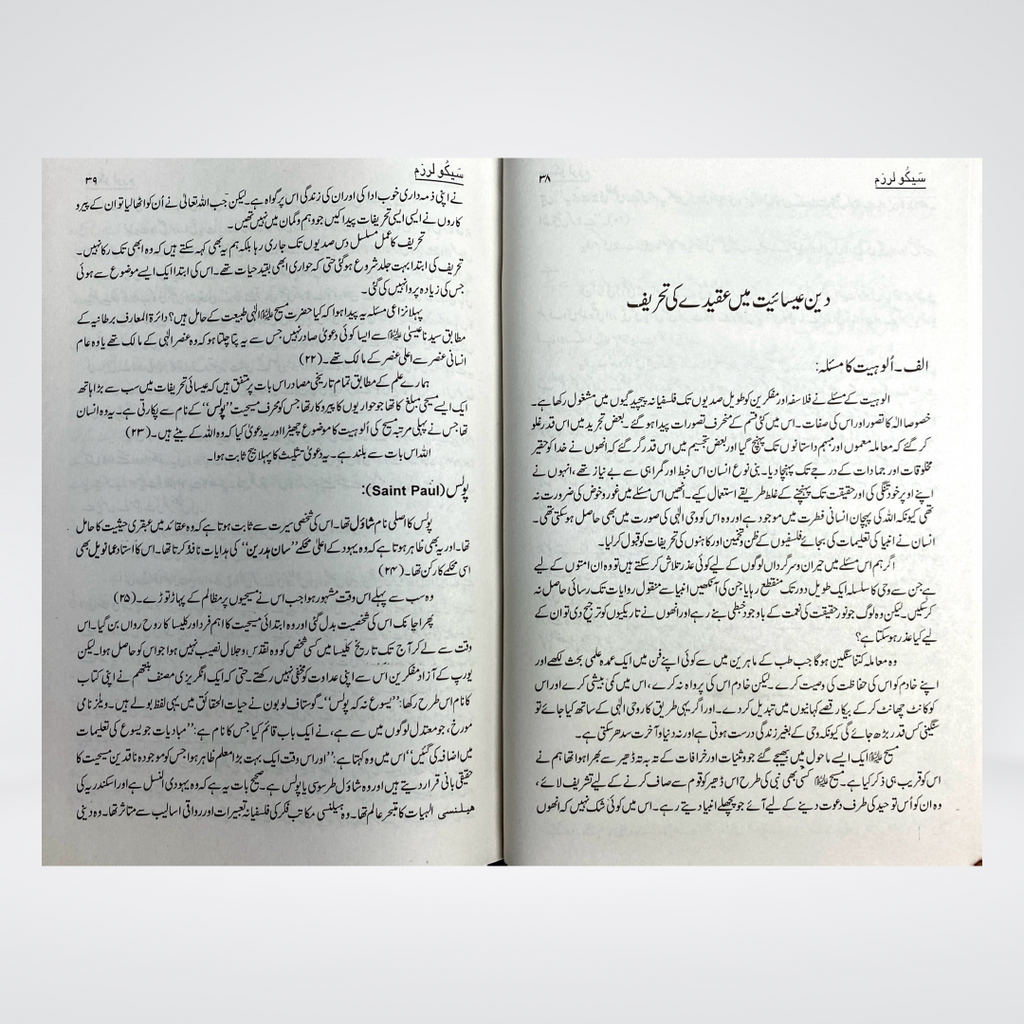 سَیکُولرزم
۳۸
دین عیسائیت میں عقیدے کی تحریف
الف۔ اُلوہیت کا مسئلہ:
الوہیت کے مسئلے نے فلاسفہ اور مفکرین کو طویل صدیوں تک فلسفیانہ پیچیدگیوں میں مشغول رکھا ہے۔
خصوصا الٰہ کا تصور اور اس کی صفات۔ اس میں کئی قسم کے منحرف تصورات پیدا ہو گئے۔ بعض تجرید میں اس قدر غلو
کر گئے کہ معاملہ معموں اور مبہم داستانوں تک پہنچ گیا اور بعض تجسیم میں اس قدر گر گئے کہ انھوں نے خدا کو حقیر
مخلوقات اور جمادات کے درجے تک پہنچا دیا۔ بنی نوع انسان اس خبط اور گمراہی سے بے نیاز تھے، انہوں نے
اپنے اوپر خود تنگی کی اور حقیقت تک پہنچنے کے غلط طریقے استعمال کیے۔ انھیں اس مسئلے میں غور و خوض کی ضرورت نہ
تھی کیونکہ اللہ کی پہچان انسانی فطرت میں موجود ہے اور وہ اس کو وحی الٰہی کی صورت میں بھی حاصل ہو سکتی تھی۔
انسان نے انبیا کی تعلیمات کی بجائے فلسفیوں کے ظن و تخمین اور کاہنوں کی تحریفات کو قبول کر لیا۔
اگر ہم اس مسئلے میں حیران و سرگرداں لوگوں کے لیے کوئی عذر تلاش کر سکتے ہیں تو وہ ان امتوں کے لیے
ہے جن سے وحی کا سلسلہ ایک طویل دور تک منقطع رہا یا جن کی آنکھیں انبیا سے منقول روایات تک رسائی حاصل نہ
کر سکیں۔ لیکن وہ لوگ جو نورِ حقیقت کی نعمت کے باوجود خبطی بنے رہے اور انھوں نے تاریکیوں کو ترجیح دی تو ان کے
لیے کیا عذر ہو سکتا ہے؟
وہ معاملہ کتنا سنگین ہوگا جب طب کے ماہرین میں سے کوئی اپنے فن میں ایک عمدہ علمی بحث لکھے اور
اپنے خادم کو اس کی حفاظت کی وصیت کرے۔ لیکن خادم اس کی پرواہ نہ کرے، اس میں کمی بیشی کرے اور اس
کو کانٹ چھانٹ کر کے بیکار قصے کہانیوں میں تبدیل کر دے۔ اور اگر یہی طریق کار وحی الٰہی کے ساتھ کیا جائے تو
سنگینی کس قدر بڑھ جائے گی کیونکہ وحی کے بغیر زندگی درست ہوتی ہے اور نہ دنیا و آخرت سدھر سکتی ہے۔
مسیح علیہ السلام ایک ایسے ماحول میں بھیجے گئے جو وثنیات اور خرافات کے تہہ بہ تہہ ڈھیر سے بھرا ہوا تھا ہم نے
اس کو قریب ہی ذکر کیا ہے۔ مسیح علیہ السلام کسی بھی نبی کی طرح اس ڈھیر کو قوم سے صاف کرنے کے لیے تشریف لائے،
وہ ان کو اُس توحید کی طرف دعوت دینے کے لیے آئے جو پچھلے انبیا دیتے رہے۔ اس میں کوئی شک نہیں کہ انھوں
سَیکُولرزم
۳۹
نے اپنی ذمہ داری خوب ادا کی اور ان کی زندگی اس پر گواہ ہے۔ لیکن جب اللہ تعالیٰ نے اُن کو اٹھا لیا تو ان کے پیرو
کاروں نے ایسی ایسی تحریفات پیدا کیں جو وہم و گمان میں نہیں تھیں۔
تحریف کا عمل مسلسل دس صدیوں تک جاری رہا بلکہ ہم یہ بھی کہہ سکتے ہیں کہ وہ ابھی تک رکا نہیں۔
تحریف کی ابتدا بہت جلد شروع ہو گئی حتیٰ کہ حواری ابھی بقید حیات تھے۔ اس کی ابتدا ایک ایسے موضوع سے ہوئی
جس کی زیادہ پروا نہیں کی گئی۔
پہلا نزاعی مسئلہ یہ پیدا ہوا کہ کیا حضرت مسیح علیہ السلام الٰہی طبیعت کے حامل ہیں؟ دائرۃ المعارف برطانیہ کے
مطابق سیدنا عیسیٰ علیہ السلام سے ایسا کوئی دعویٰ صادر نہیں جس سے یہ پتا چلتا ہو کہ وہ عنصر الٰہی کے مالک تھے یا وہ عام
انسانی عنصر سے اعلیٰ عنصر کے مالک تھے۔ (۲۲)
ہمارے علم کے مطابق تمام تاریخی مصادر اس بات پر متفق ہیں کہ عیسائی تحریفات میں سب سے بڑا ہاتھ
ایک ایسے مسیحی مبلغ کا تھا جو حواریوں کا پیروکار تھا جس کو محرف مسیحیت ”پولس“ کے نام سے پکارتی ہے۔ یہ وہ انسان
تھا جس نے پہلی مرتبہ مسیح کی اُلوہیت کا موضوع چھیڑا اور یہ دعویٰ کیا کہ وہ اللہ کے بیٹے ہیں۔ (۲۳)
اللہ اس بات سے بلند ہے۔ یہ دعویٰ تثلیث کا پہلا بیج ثابت ہوا۔
پولس (Saint Paul):
پولس کا اصلی نام شاؤل تھا۔ اس کی شخصی سیرت سے ثابت ہوتا ہے کہ وہ عقائد میں عبقری حیثیت کا حامل
تھا۔ اور یہ بھی ظاہر ہوتا ہے کہ وہ یہود کے اعلیٰ محکمے ”سان ہدرین“ کی ہدایات نافذ کرتا تھا۔ اس کا استاد عمانویل بھی
اسی محکمے کا رکن تھا۔ (۲۴)
وہ سب سے پہلے اس وقت مشہور ہوا جب اس نے مسیحیوں پر مظالم کے پہاڑ توڑے۔ (۲۵)
پھر اچانک اس کی شخصیت بدل گئی اور وہ ابتدائی مسیحیت کا اہم فرد اور کلیسا کا روح رواں بن گیا۔ اس
وقت سے لے کر آج تک تاریخ کلیسا میں کسی شخص کو وہ تقدس و جلال نصیب نہیں ہوا جو اس کو حاصل ہوا۔ لیکن
یورپ کے آزاد مفکرین اس سے اپنی عداوت کو مخفی نہیں رکھتے۔ حتی کہ ایک انگریزی مصنف بنتھم نے اپنی کتاب
کا نام اس طرح رکھا: ”یسوع نہ کہ پولس“۔ گوستاف لوبون نے حیات الحقائق میں یہی لفظ بولے ہیں۔ ویلز نامی
مورخ، جو معتدل لوگوں میں سے ہے، نے ایک باب قائم کیا جس کا نام ہے: ”مبادیات جو یسوع کی تعلیمات
میں اضافہ کی گئیں“ اس میں وہ کہتا ہے: ”اور اس وقت ایک بہت بڑا معلم ظاہر ہوا، جس کو موجودہ ناقدین مسیحیت کا
حقیقی بانی قرار دیتے ہیں اور وہ شاؤل طرسوسی یا پولس ہے۔ صحیح بات یہ ہے کہ وہ یہودی النسل ہے اور اسکندریہ کی
ھیلنسی الٰہیات کا متبحر عالم تھا۔ وہ ہیلنسی مکاتب فکر کی فلسفیانہ تعبیرات اور رواقی اسالیب سے متاثر تھا۔ وہ دینی